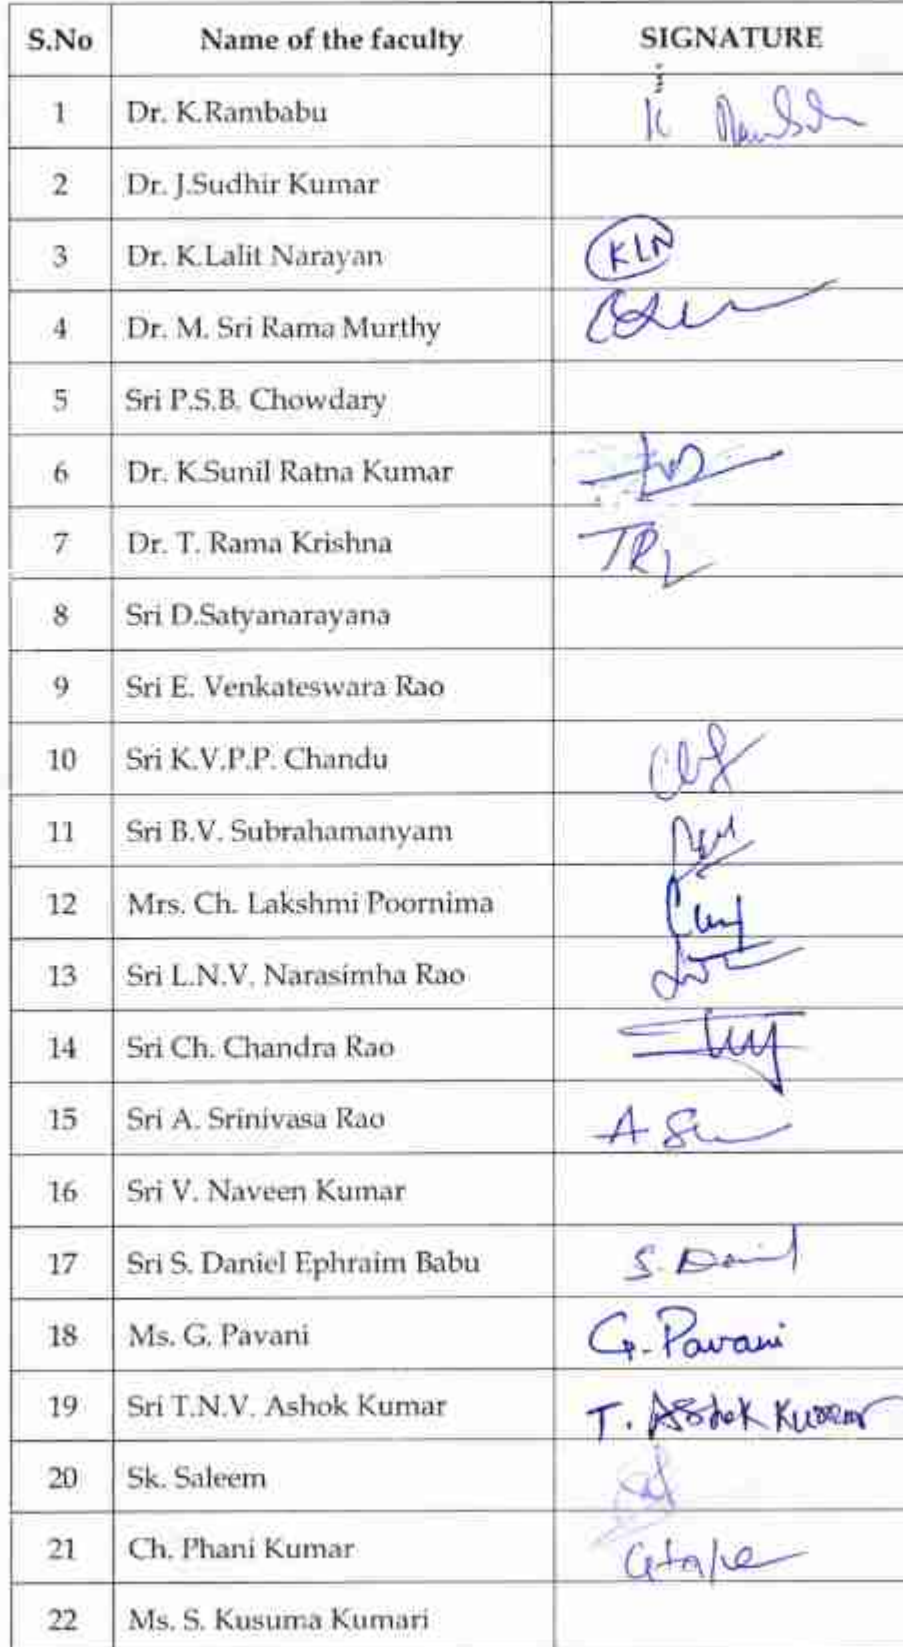 S.No Name of the faculty SIGNATURE
1 Dr. K.Rambabu K
2 Dr. J.Sudhir Kumar
3 Dr. K.Lalit Narayan KLN
4 Dr. M. Sri Rama Murthy
5 Sri P.S.B. Chowdary
6 Dr. K.Sunil Ratna Kumar
7 Dr. T. Rama Krishna
8 Sri D.Satyanarayana
9 Sri E. Venkateswara Rao
10 Sri K.V.P.P. Chandu
11 Sri B.V. Subrahamanyam
12 Mrs. Ch. Lakshmi Poornima
13 Sri L.N.V. Narasimha Rao
14 Sri Ch. Chandra Rao
15 Sri A. Srinivasa Rao A
16 Sri V. Naveen Kumar
17 Sri S. Daniel Ephraim Babu S.
18 Ms. G. Pavani G. Pavani
19 Sri T.N.V. Ashok Kumar T. Ashok Kumar
20 Sk. Saleem
21 Ch. Phani Kumar
22 Ms. S. Kusuma Kumari